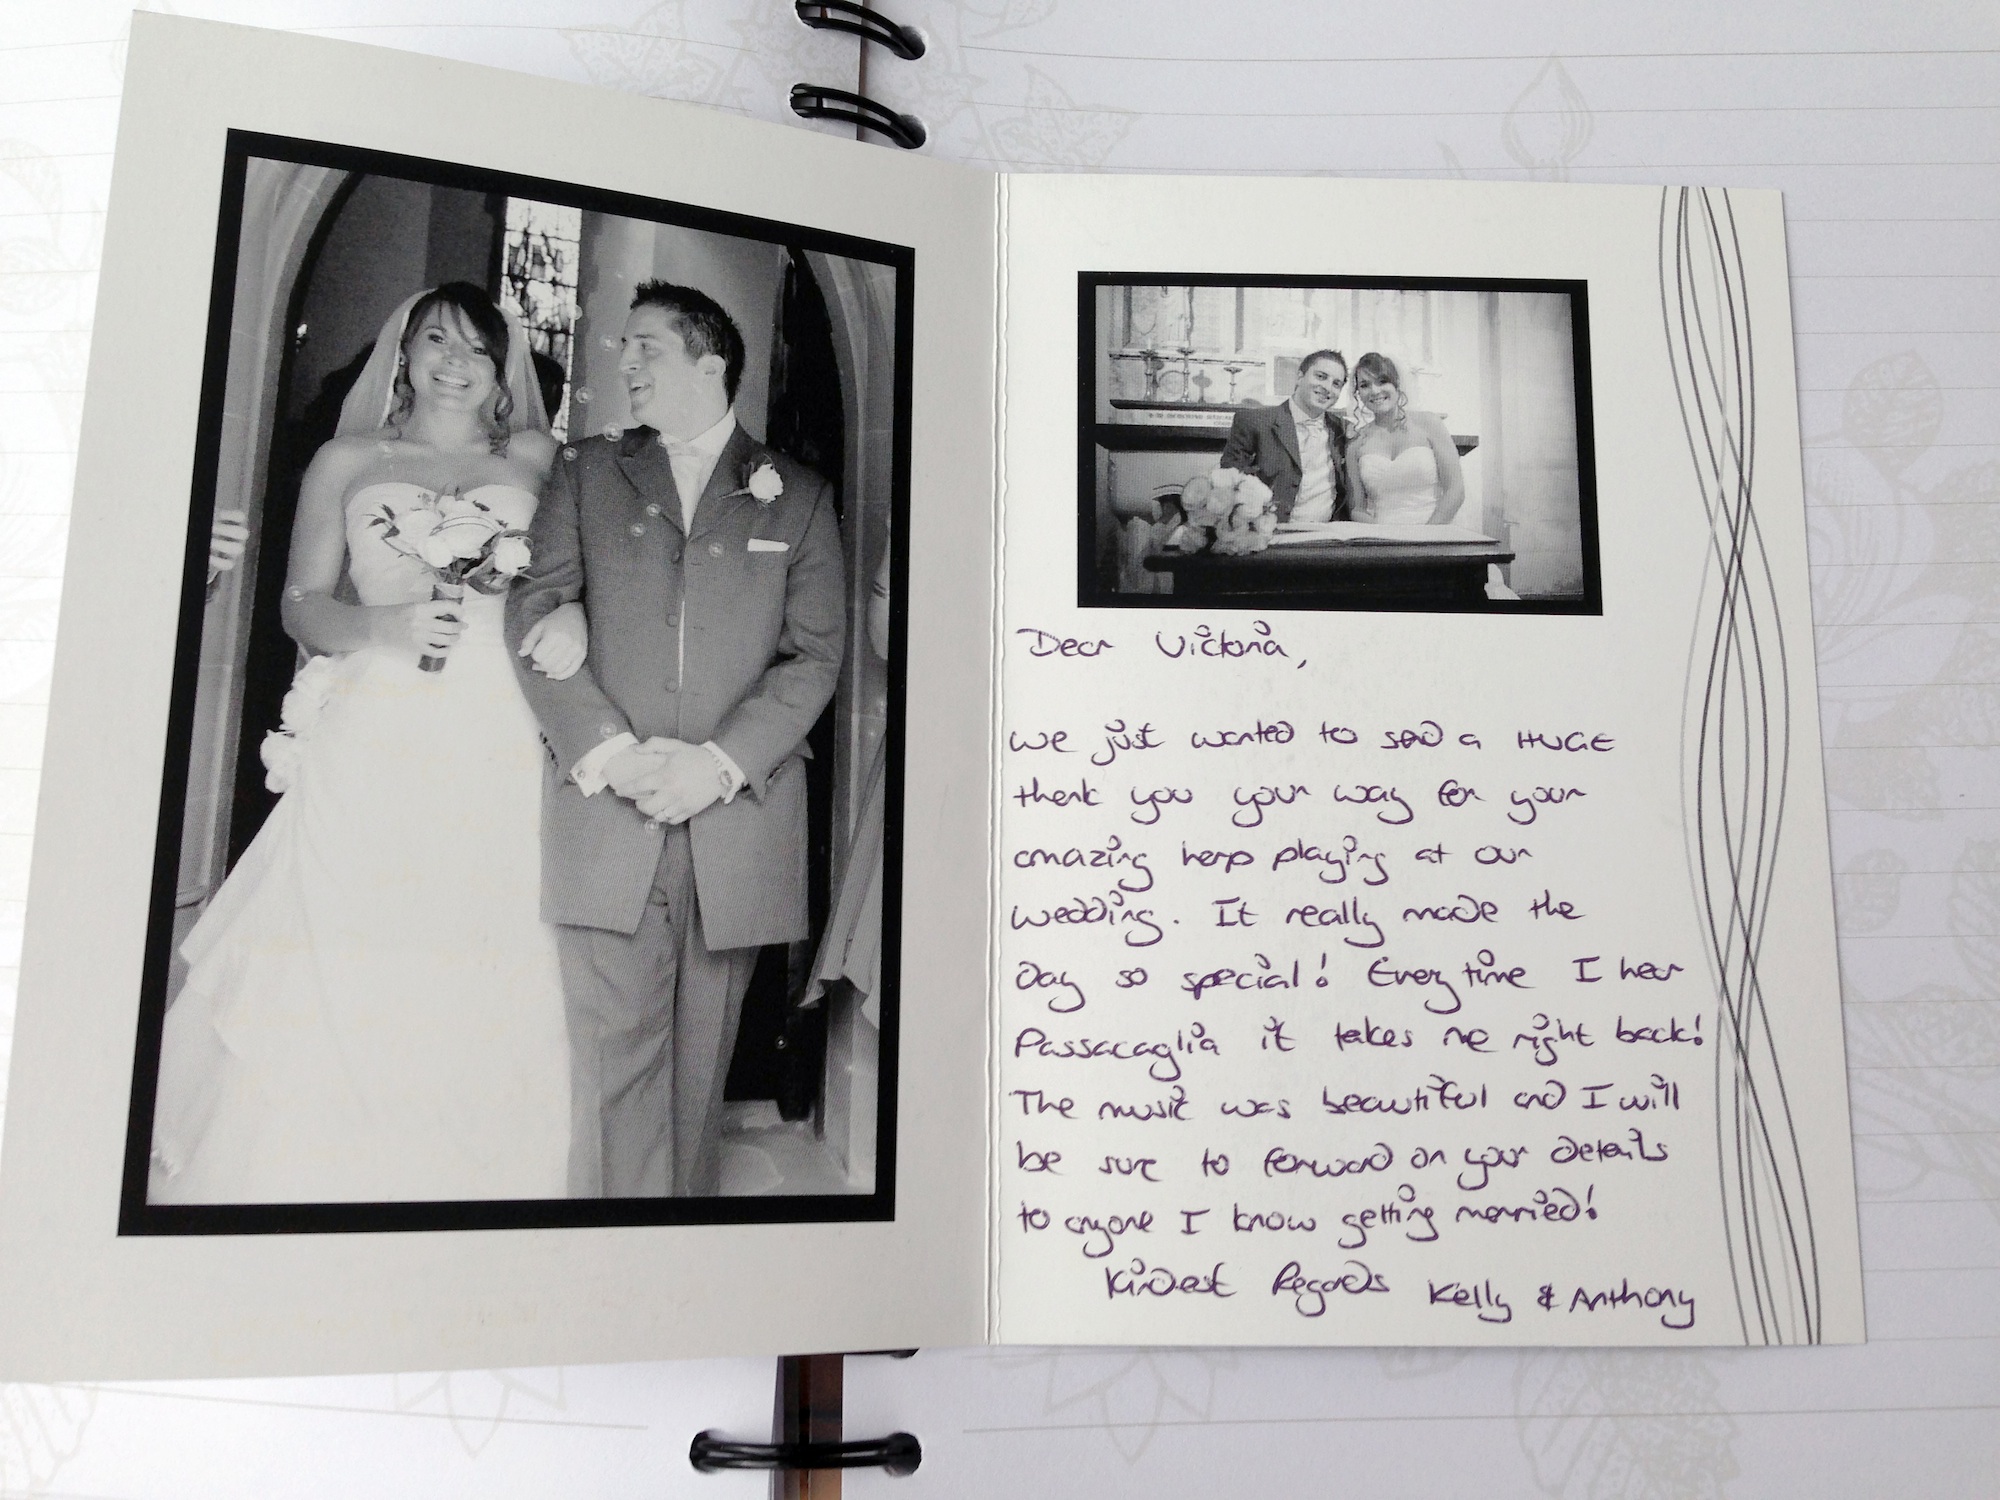 Dear Victoria,
We just wanted to send a HUGE
thank you your way for your
amazing harp playing at our
wedding. It really made the
day so special! Every time I hear
Passacaglia it takes me right back!
The music was beautiful and I will
be sure to forward on your details
to anyone I know getting married!
Kindest Regards Kelly & Anthony